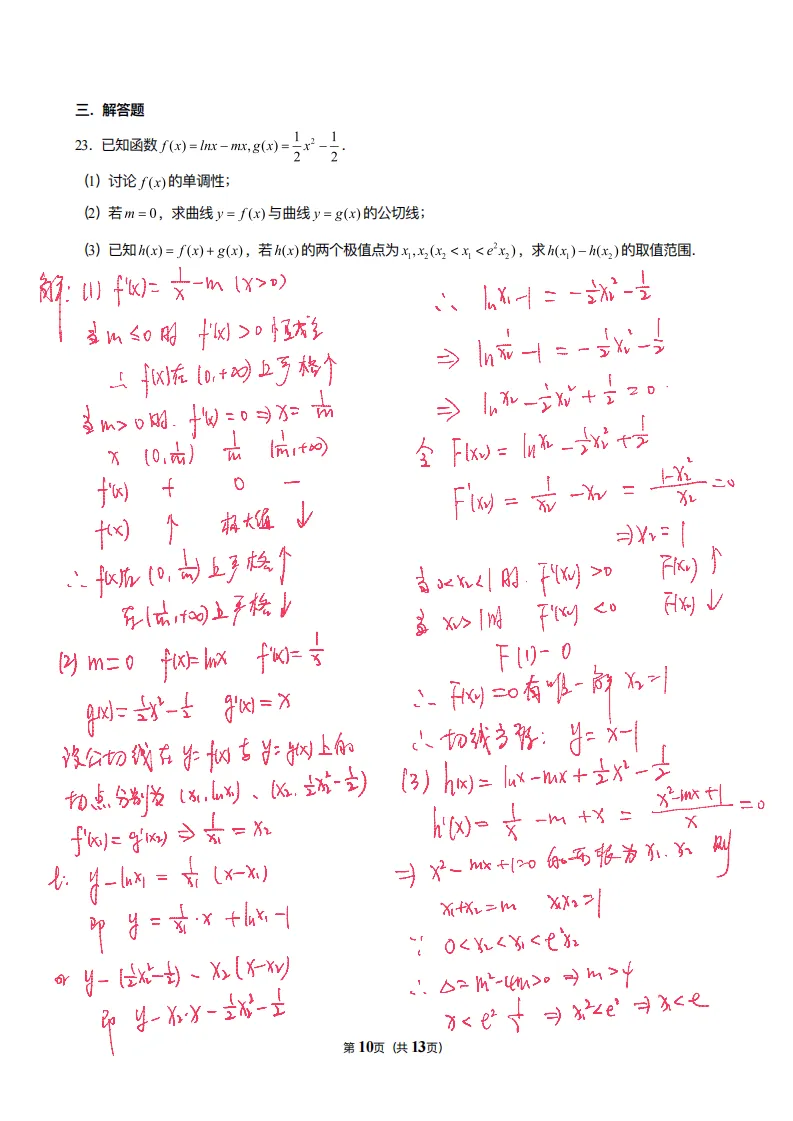 三．解答题
23．已知函数 f(x)=lnx−mx,g(x)=\frac{1}{2}x²−\frac{1}{2}．
（1）讨论 f(x)的单调性；
（2）若m=0，求曲线 y=f(x)与曲线 y=g(x)的公切线；
（3）已知h(x)=f(x)+g(x)，若h(x)的两个极值点为x₁,x₂(x₂<x₁<e²x₂)，求h(x₁)−h(x₂)的取值范围．
解：(1) f'(x)=\frac{1}{x}−m (x>0)
当m≤0时 f'(x)>0恒成立
∴ f(x)在(0,+∞)上严格↑
当m>0时. f'(x)=0⇒x=\frac{1}{m}
x (0,\frac{1}{m}) \frac{1}{m} (\frac{1}{m},+∞)
f'(x) + 0 −
f(x) ↑ 极大值 ↓
∴ f(x)在(0,\frac{1}{m})上严格↑
在(\frac{1}{m},+∞)上严格↓
(2) m=0 f(x)=lnx f'(x)=\frac{1}{x}
g(x)=\frac{1}{2}x²−\frac{1}{2} g'(x)=x
设公切线在y=f(x)与y=g(x)上的
切点分别为(x₁,lnx₁)、(x₂,\frac{1}{2}x₂²−\frac{1}{2})
f'(x₁)=g'(x₂)⇒\frac{1}{x₁}=x₂
l: y−lnx₁=\frac{1}{x₁}(x−x₁)
即 y=\frac{1}{x₁}·x+lnx₁−1
or y−(\frac{1}{2}x₂²−\frac{1}{2})=x₂(x−x₂)
即 y=x₂·x−\frac{1}{2}x₂²−\frac{1}{2}
∴ lnx₁−1=−\frac{1}{2}x₂²−\frac{1}{2}
⇒ ln\frac{1}{x₂}−1=−\frac{1}{2}x₂²−\frac{1}{2}
⇒ lnx₂−\frac{1}{2}x₂²+\frac{1}{2}=0.
令 F(x₂)=lnx₂−\frac{1}{2}x₂²+\frac{1}{2}
F'(x₂)=\frac{1}{x₂}−x₂=\frac{1−x₂²}{x₂}=0
⇒x₂=1
当0<x₂<1时. F'(x₂)>0 F(x₂)↑
当x₂>1时 F'(x₂)<0 F(x₂)↓
F(1)=0
∴ F(x₂)=0有唯一解 x₂=1
∴切线方程: y=x−1
(3) h(x)=lnx−mx+\frac{1}{2}x²−\frac{1}{2}
h'(x)=\frac{1}{x}−m+x=\frac{x²−mx+1}{x}=0
⇒ x²−mx+1=0的两根为x₁.x₂ 则
x₁+x₂=m x₁x₂=1
∵ 0<x₂<x₁<e²x₂
∴ Δ=m²−4m>0⇒m>4